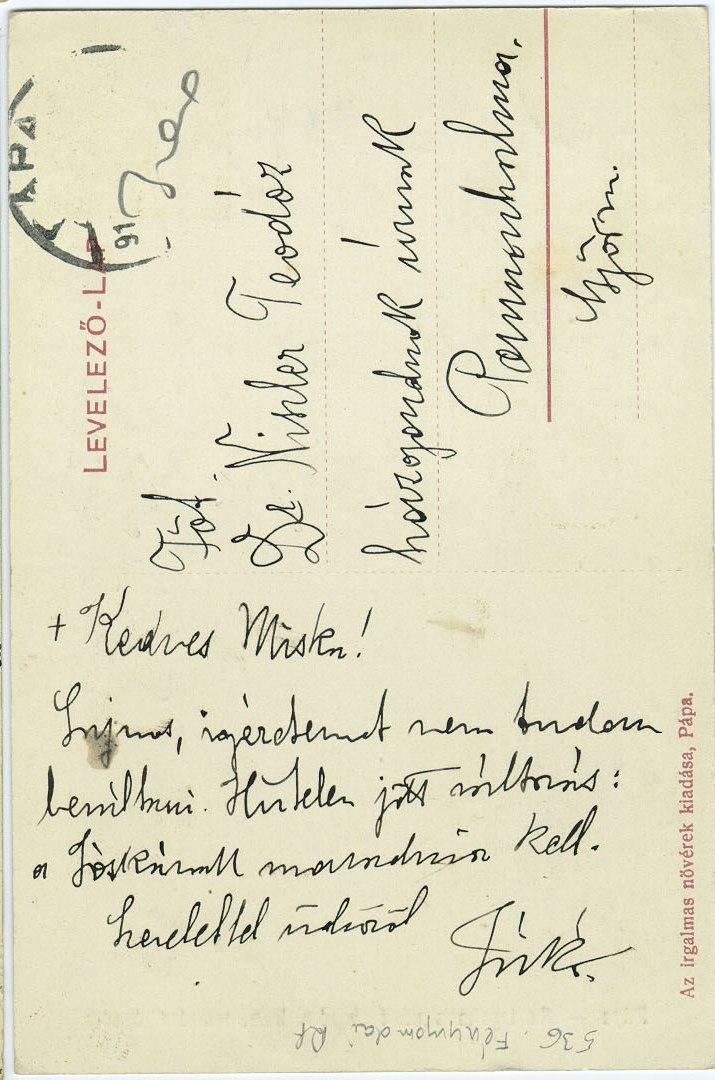 LEVELEZŐ-LAP
PÁPA
91
Főt.
Dr. Nisler Teodóz
házgondnok úrnak
Pannonhalma.
Győrm.
+ Kedves Miska!
Sajnos, igéretemet nem tudom
beváltani. Hirtelen jött változás:
a Jóskának maradnia kell.
Szeretettel üdvözöl
Az irgalmas nővérek kiadása, Pápa.
536. Fénynyomdai Rt